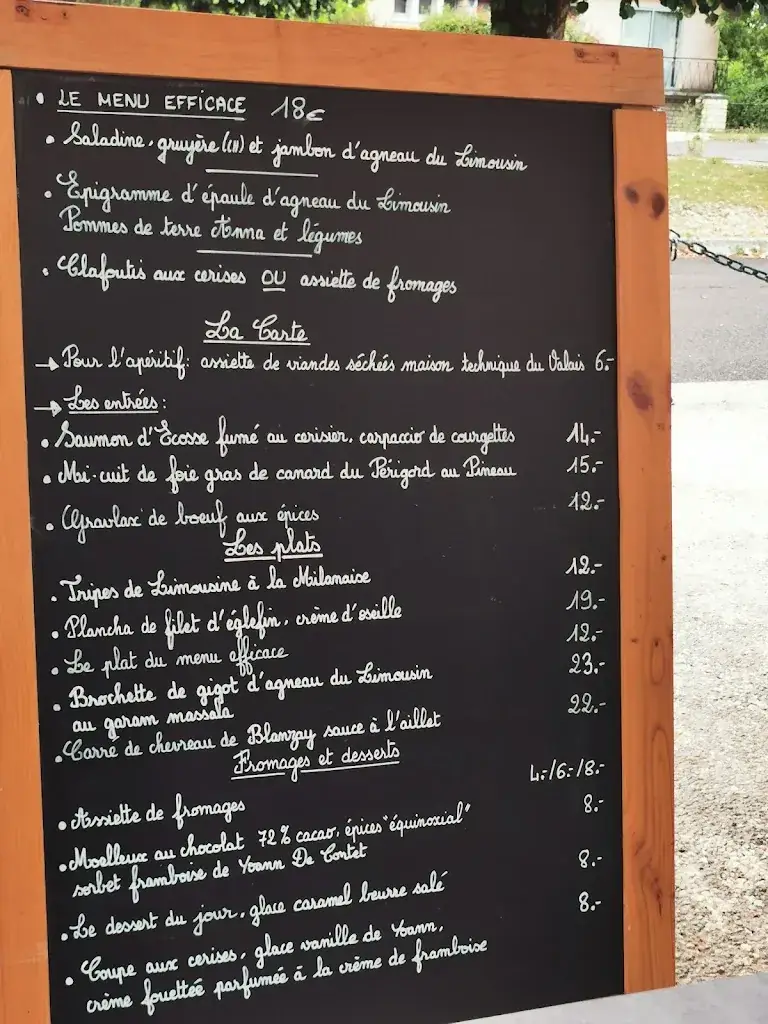 • LE MENU EFFICACE 18€
• Saladine, gruyère (CH) et jambon d'agneau du Limousin
• Epigramme d'épaule d'agneau du Limousin
Pommes de terre Anna et légumes
• Clafoutis aux cerises OU assiette de fromages
La Carte
→ Pour l'apéritif: assiette de viandes séchées maison technique du Valais 6.-
→ Les entrées:
• Saumon d'Ecosse fumé au cerisier, carpaccio de courgettes 14.-
• Mi-cuit de foie gras de canard du Périgord au Pineau 15.-
• Gravlax de boeuf aux épices 12.-
Les plats
• Tripes de Limousine à la Milanaise 12.-
• Plancha de filet d'églefin, crème d'oseille 19.-
• Le plat du menu efficace 12.-
• Brochette de gigot d'agneau du Limousin 23.-
au garam massala
• Carré de chevreau de Blanzay sauce à l'aillet 22.-
Fromages et desserts
• Assiette de fromages 4.-/6.-/8.-
• Moelleux au chocolat 72% cacao, épices "équinoxial" 8.-
sorbet framboise de Yoann De Contet
• Le dessert du jour, glace caramel beurre salé 8.-
• Coupe aux cerises, glace vanille de Yoann, 8.-
crème fouettée parfumée à la crème de framboise